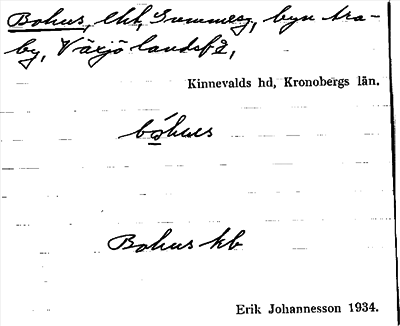 Bohus, lht, Gummesg, byn Ara-
by, Växjö landsfs,
Kinnevalds hd, Kronobergs län.
bóhus
Bohus kb
Erik Johannesson 1934.